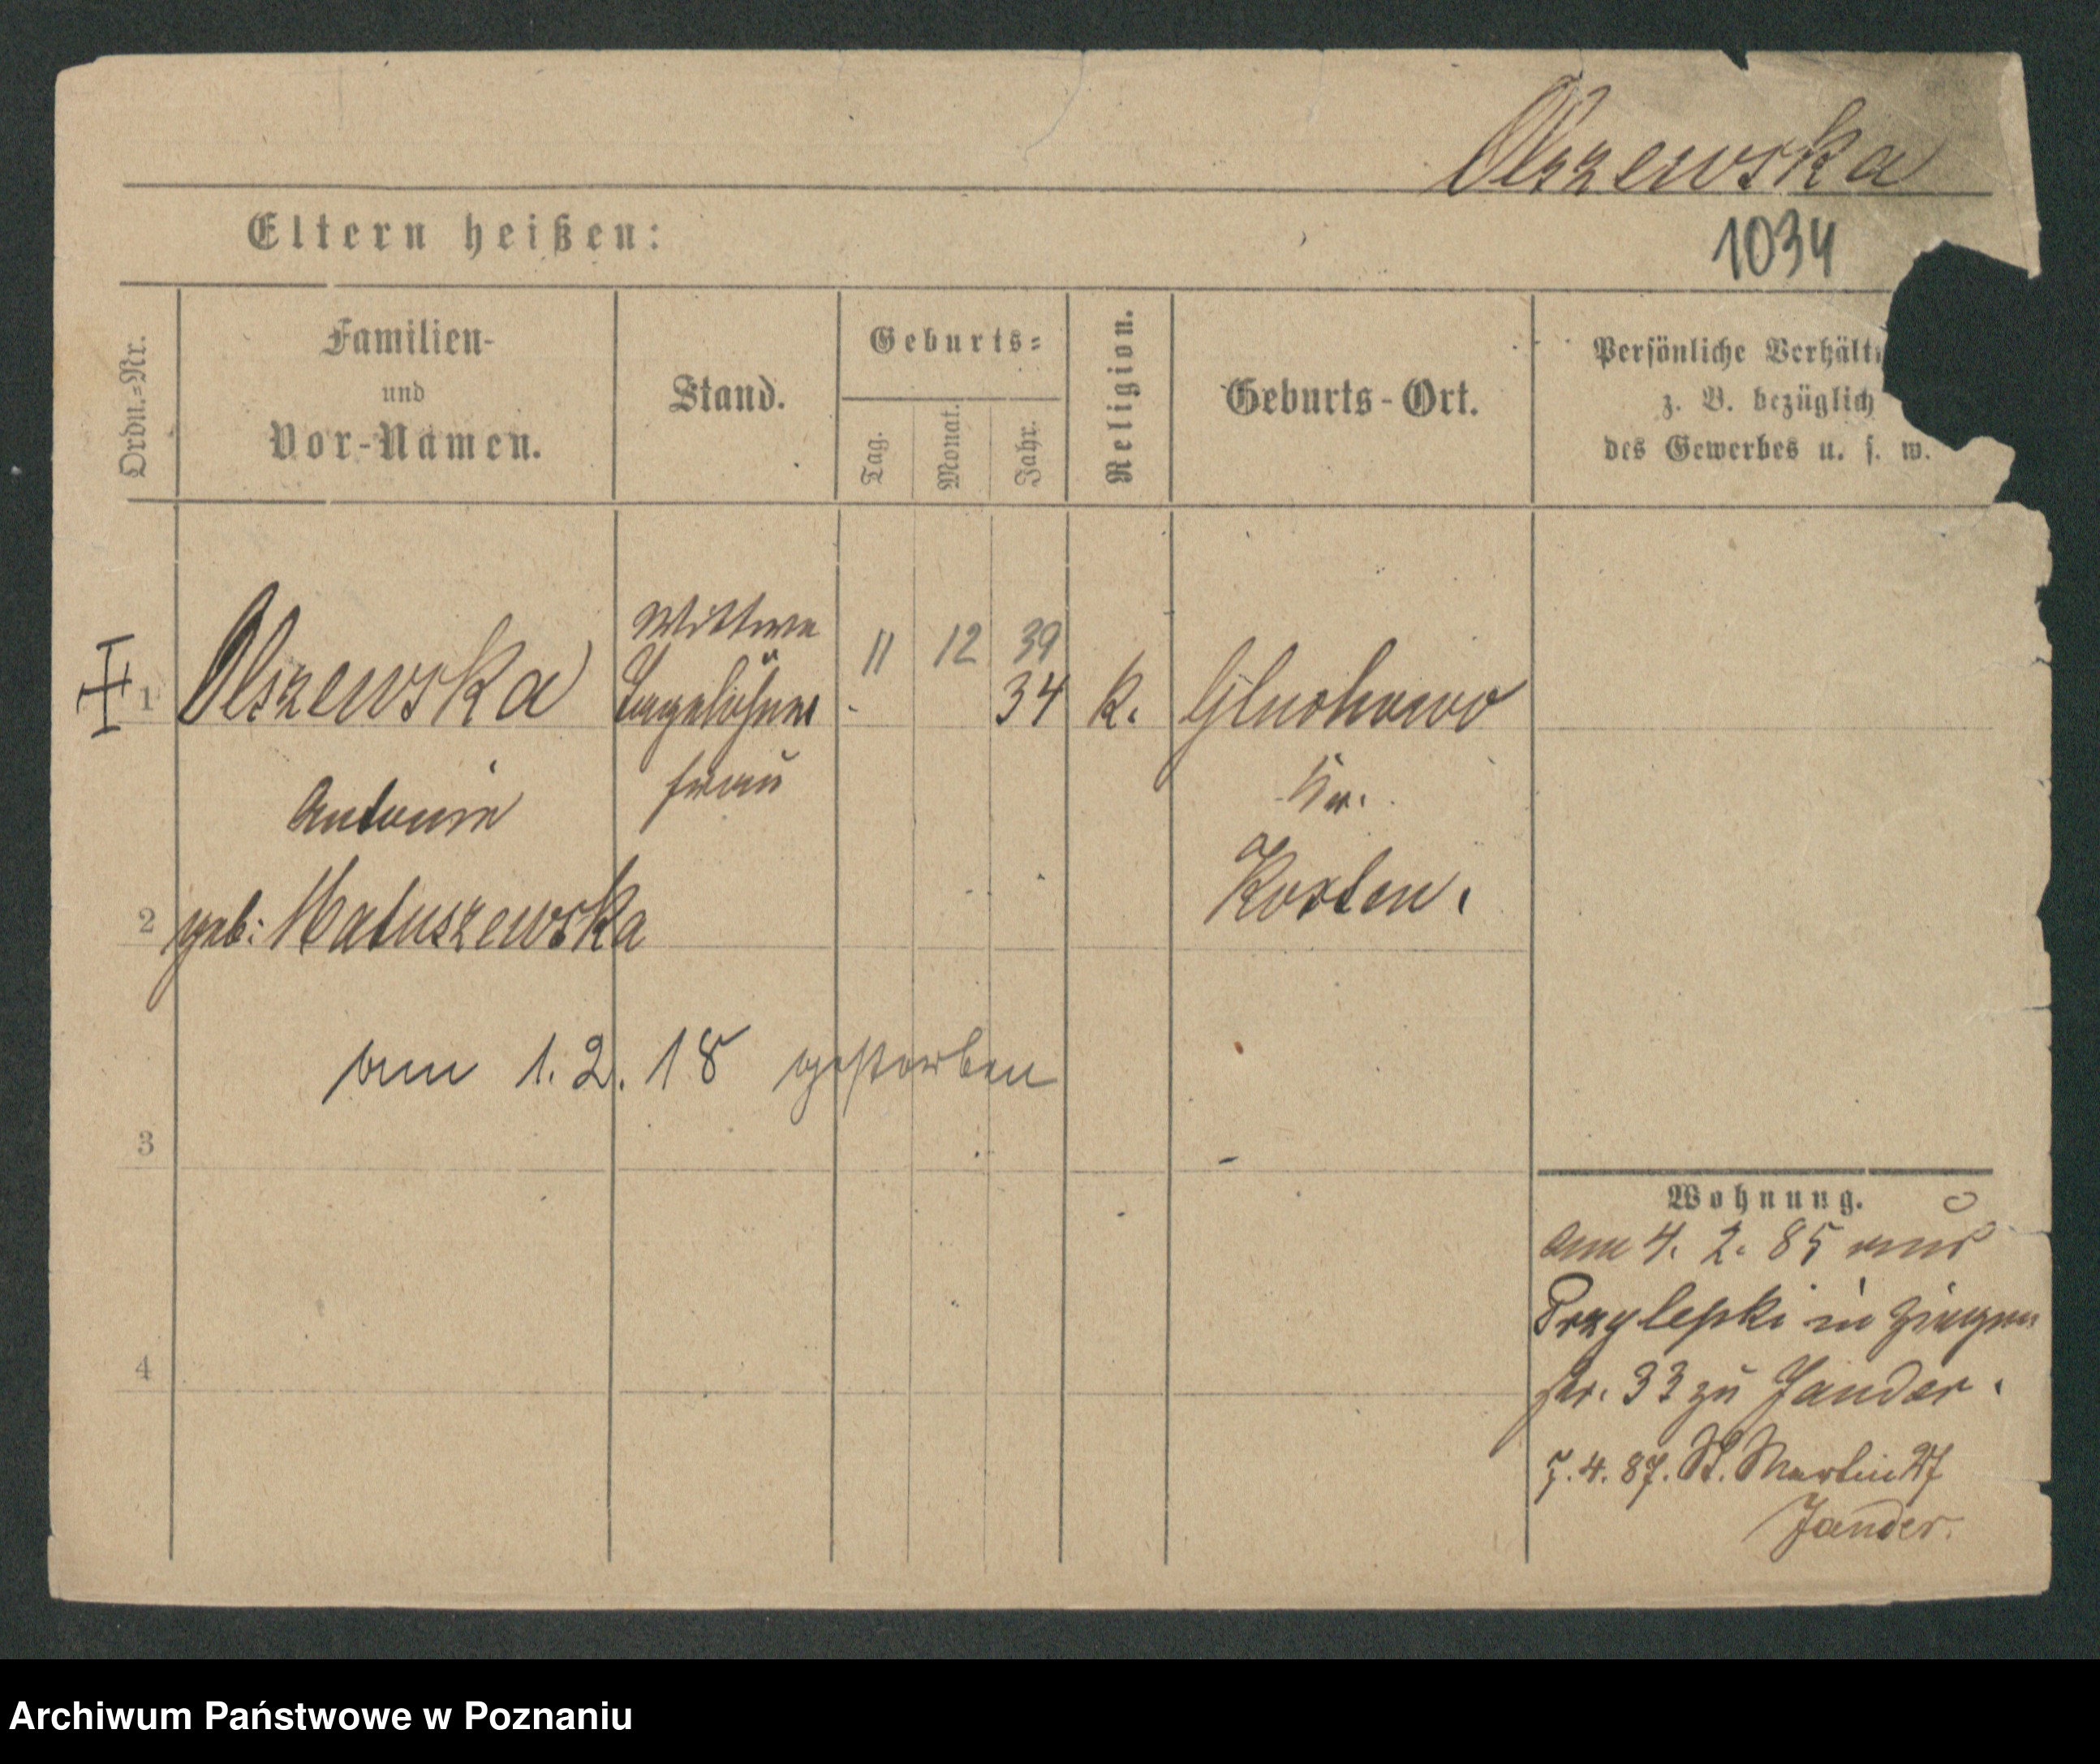 Olszewska
Eltern heißen:
1034
Ordn.=Nr.
Familien-
und
Vor-Namen.
Stand.
Geburts=
Tag.
Monat.
Jahr.
Religion.
Geburts-Ort.
Persönliche Verhält
z. B. bezüglich
des Gewerbes u. s. w.
Wittwe
11 12 39
1 Olszewska Tagelöhner 34 k. Gluchowo
frau Kr.
Antonie
Kosten.
2 geb: Matuszewska
am 1. 2. 18 gestorben
3
Wohnung.
am 4. 2. 85 aus
Przylepki in Ziegen
str. 33 zu Jander.
4
7. 4. 87. St. Martin 27
Jander.
Archiwum Państwowe w Poznaniu